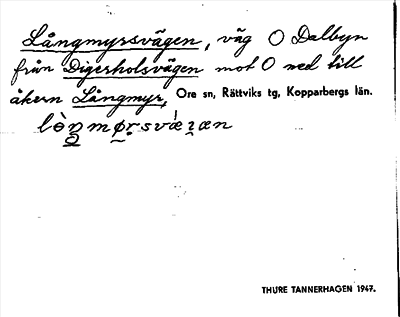 Långmyrsvägen, väg O Dalbyn
från Digerholsvägen mot O ned till
åkern Långmyr, Ore sn, Rättviks tg, Kopparbergs län.
THURE TANNERHAGEN 1947.